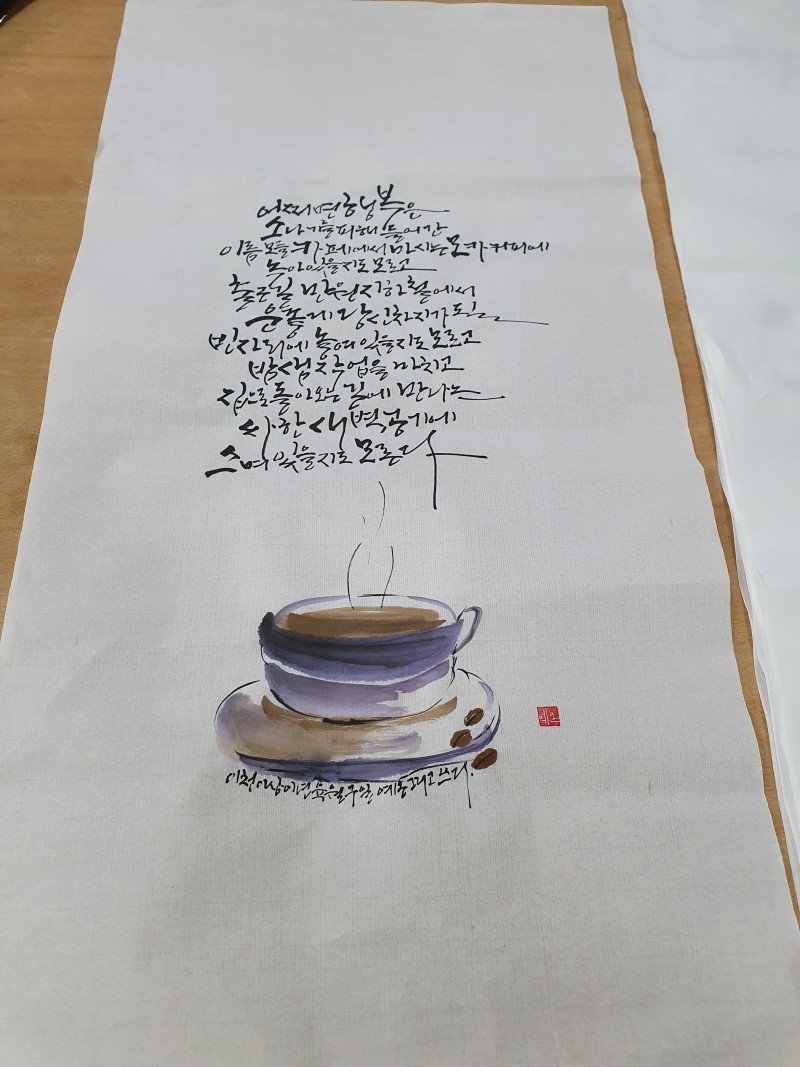 어쩌면 행복은
소나기를 피해 들어간
이름 모를 카페에서 마시는 모카커피에
녹아 있을지도 모르고
출근길 만원 지하철에서
운좋게 당신 차지가 되는
빈자리에 놓여 있을지도 모르고
밤샘 작업을 마치고
집으로 돌아오는 길에 만나는
싸한 새벽 공기에
스며 있을지도 모른다
이천이십이년 육월 구일 예홍 그리고 쓰다.